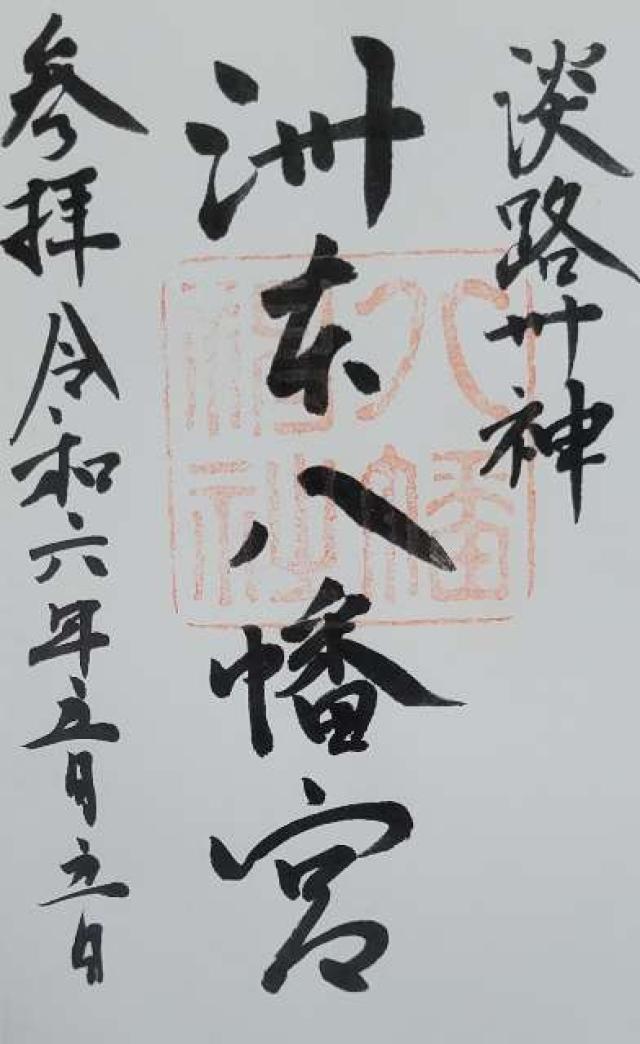 淡路州神
洲本八幡宮
八幡
神社
参拝 令和六年五月五日